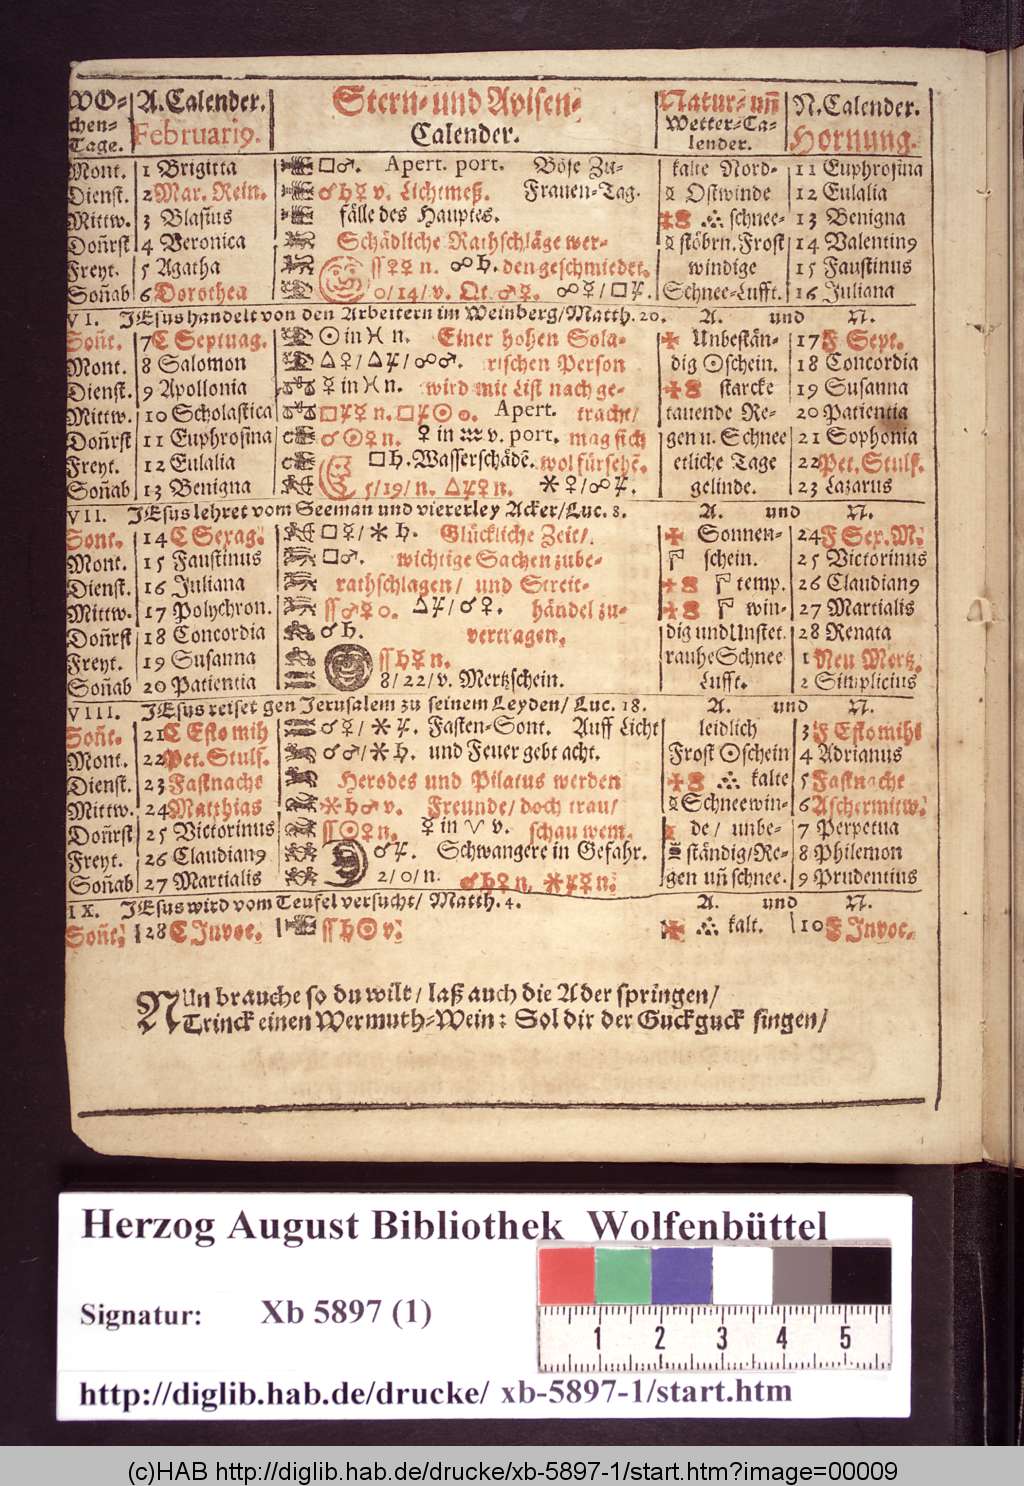 WO- A. Calender. Stern- und Avisen- Natur- uñ N. Calender.
chen- Februari9. Calender. Wetter-Ca- Hornung.
Tage. lender.
Mont. 1 Brigitta □♂. Apert. port. Böse Zu- kalte Nord- 11 Euphrosina
Dienst. 2 Mar. Rein. ☌♄☿ v. Lichtmeß. Frauen-Tag. ☿ Ostwinde 12 Eulalia
Mittw. 3 Blasius fälle des Hauptes. schnee- 13 Benigna
Doñrst 4 Veronica Schädliche Rathschläge wer- ☿ stöbrn. Frost 14 Valentin9
Freyt. 5 Agatha ☿♀ n. ☍♄. den geschmiedet. windige 15 Faustinus
Soñab 6 Dorothea 0/14/v. Qt. ♂☿. ☍☿/□♃. Schnee-Lufft. 16 Juliana
VI. JEsus handelt von den Arbeitern im Weinberg/Matth. 20. A. und N.
Soñt. 7 C Septuag. ☉ in ♓ n. Einer hohen Sola- Unbestän- 17 F Sept.
Mont. 8 Salomon △♀/△♃/☍♂. rischen Person dig ☉schein. 18 Concordia
Dienst. 9 Apollonia ☿ in ♓ n. wird mit List nach ge- starcke 19 Susanna
Mittw. 10 Scholastica □♃☿ n. □♃☉ o. Apert. tracht/ tauende Re- 20 Patientia
Doñrst 11 Euphrosina ☌☉♀ n. ♀ in ♒ v. port. mag sich gen u. Schnee 21 Sophonia
Freyt. 12 Eulalia □♄. Wasserschädẽ. wol fürsehẽ. etliche Tage 22 Pet. Stulf.
Soñab 13 Benigna 5/19/n. △♃♀ n. ✶♀/☍♃. gelinde. 23 Lazarus
VII. JEsus lehret vom Seeman und viererley Acker/Luc. 8. A. und N.
Sont. 14 C Sexag. □☿/✶♄. Glückliche Zeit/ Sonnen- 24 F Sex. M.
Mont. 15 Faustinus □♂. wichtige Sachen zube- schein. 25 Victorinus
Dienst. 16 Juliana rathschlagen/ und Streit- temp. 26 Claudian9
Mittw. 17 Polychron. ♂☿ o. △♃/☌♀. händel zu- win- 27 Martialis
Doñrst 18 Concordia ☌♄. vertragen. dig und Unstet. 28 Renata
Freyt. 19 Susanna ♄☿ n. rauhe Schnee 1 Neu Mertz.
Soñab 20 Patientia 8/22/v. Mertzschein. Lufft. 2 Simplicius
VIII. JEsus reiset gen Jerusalem zu seinem Leyden/ Luc. 18. A. und N.
Soñt. 21 C Esto mih ☌☿/✶♃. Fasten-Sont. Auff Licht leidlich 3 F Esto mihi
Mont. 22 Pet. Stulf. ☌♂/✶♄. und Feuer gebt acht. Frost ☉schein 4 Adrianus
Dienst. 23 Fastnacht Herodes und Pilatus werden kalte 5 Fastnacht
Mittw. 24 Matthias ✶♄♂ v. Freunde/ doch trau/ ☿ Schneewin- 6 Aschermitw.
Doñrst 25 Victorinus ☉♀ n. ☿ in ♈ v. schau wem. de/ unbe- 7 Perpetua
Freyt. 26 Claudian9 ☌♃. Schwangere in Gefahr. ständig/Re- 8 Philemon
Soñab 27 Martialis 2/0/n. ☌♄♀ n. ✶♃☿ n. gen uñ schnee. 9 Prudentius
IX. JEsus wird vom Teufel versucht/ Matth. 4. A. und N.
Soñt. 28 C Invoc. ♄☉ v. kalt. 10 F Invoc.
NUn brauche so du wilt/ laß auch die Ader springen/
Trinck einen Wermuth-Wein: Sol dir der Guckguck singen/
Herzog August Bibliothek Wolfenbüttel
Signatur: Xb 5897 (1)
1 2 3 4 5
http://diglib.hab.de/drucke/ xb-5897-1/start.htm
(c)HAB http://diglib.hab.de/drucke/xb-5897-1/start.htm?image=00009